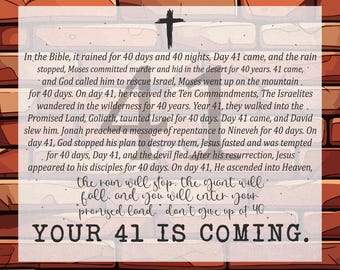 41
In the Bible, it rained for 40 days and 40 nights, Day 41 came, and the rain
stopped, Moses committed murder and hid in the desert for 40 years. 41 came,
and God called him to rescue Israel, Moses went up on the mountain
for 40 days. On day 41, he received the Ten Commandments, The Israelites
wandered in the wilderness for 40 years. Year 41, they walked into the
Promised Land, Goliath, taunted Isael for 40 days. Day 41 came, and David
slew him. Jonah preached a message of repentance to Nineveh for 40 days. On
day 41, God stopped his plan to destroy them, Jesus fasted and was tempted
for 40 days, Day 41 came, and the devil fled. After his resurrection, Jesus
appeared to his disciples for 40 days. On day 41, He ascended into Heaven,
the rain will stop, the giant will
fall, and you will enter your
promised land, don't give up at 40
YOUR 41 IS COMING.